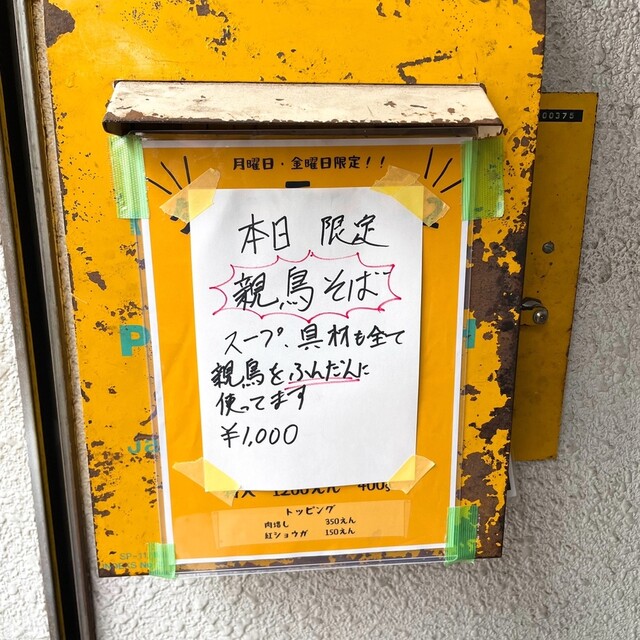 00375
月曜日・金曜日限定！！
本日 限定
親鳥そば
スープ、具材も全て
親鳥をふんだんに
使ってます
¥1,000
1200えん 400g
トッピング
肉増し 350えん
紅ショウガ 150えん
SP-11